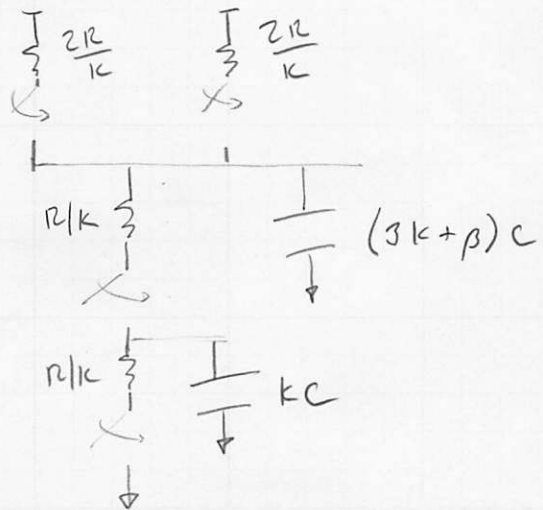 2R/K 2R/K
R/K (3K+β)C
R/K KC